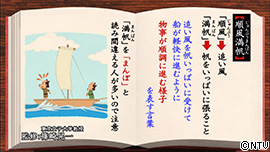 【順風満帆】
じゅんぷうまんぱん
「順風」➡追い風
「満帆」➡帆をいっぱいに張ること
追い風を帆いっぱいに受けて
船が軽快に進むように
物事が順調に進む様子
を表す言葉
「満帆」を「まんぽ」と
読み間違える人が多いので注意
©NTV